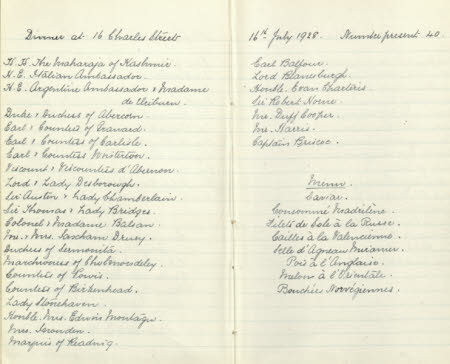 Dinner at 16 Charles Street
H.H. The Maharaja of Kashmir.
H.E. Italian Ambassador.
H.E. Argentine Ambassador & Madame
de Uriburu.
Duke & Duchess of Abercorn.
Earl & Countess of Granard.
Earl & Countess of Carlisle.
Earl & Countess Winterton.
Viscount & Viscountess d'Abernon.
Lord & Lady Desborough.
Sir Austen & Lady Chamberlain.
Sir Thomas & Lady Bridges.
Colonel & Madame Balsan.
Mr. & Mrs. Saxham Drury.
Duchess of Sermoneta.
Marchioness of Cholmondeley.
Countess of Powis.
Countess of Birkenhead.
Lady Stonehaven.
Honble. Mrs. Edwin Montagu.
Mrs.
Marquis of Reading.
16th July 1928. Number present 40.
Earl Balfour.
Lord Blanesburgh.
Honble. Evan Charteris.
Sir Robert Horne.
Mr. Duff Cooper.
Mr. Harris.
Captain Briscoe.
Menu
Caviar.
Consommé Madrilène.
Filets de Sole à la Russe.
Cailles à la Valencienne.
Selle d'Agneau Miramer.
Pois à l'Anglaise.
Melon à l'Orientale.
Bouchées Norvégiennes.